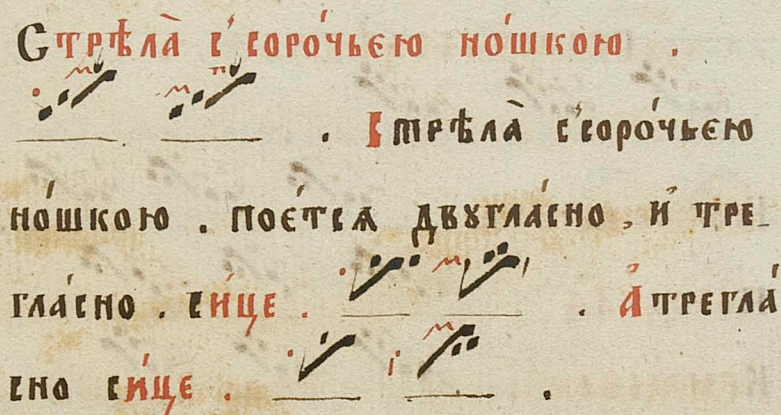 Стрѣла̀ с̾ соро́чьєю но́шкою .
. Стрѣла̀ с̾соро́чьєю
но́шкою . пое́тсѧ двꙋгла́сно , и҆ тре_
гла́сно . си́це . . А҆ трегла́
сно си́це . .